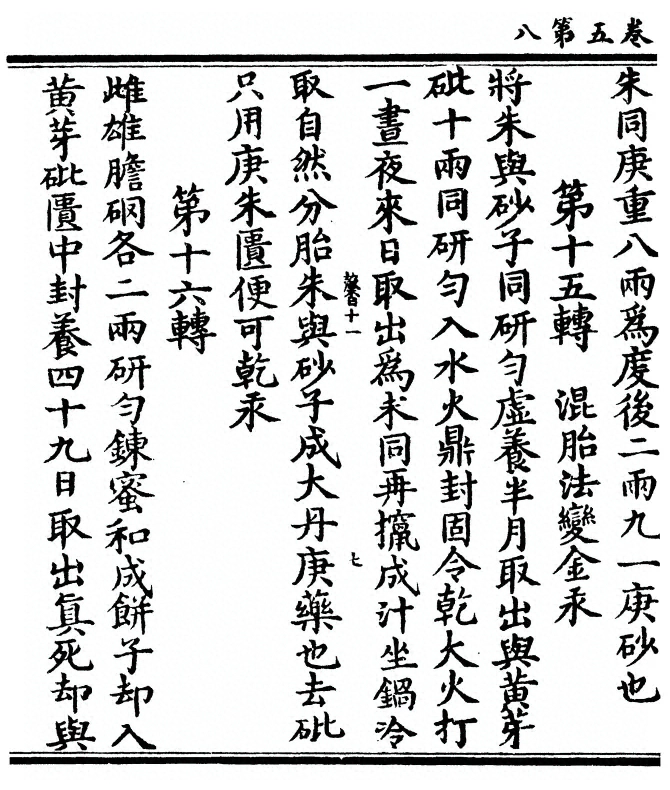 卷五第八
朱同庚重八兩爲度後二兩九一庚砂也
第十五轉　混胎法變金汞
將朱與砂子同研勻虛養半月取出與黃芽
砒十兩同研勻入水火鼎封固令乾大火打
一晝夜來日取出爲末同再攛成汁坐鍋冷
取自然分胎朱與砂子成大丹庚藥也去砒
七
只用庚朱匱便可乾汞
第十六轉
雌雄膽硇各二兩研勻鍊蜜和成餅子却入
黃芽砒匱中封養四十九日取出眞死却與